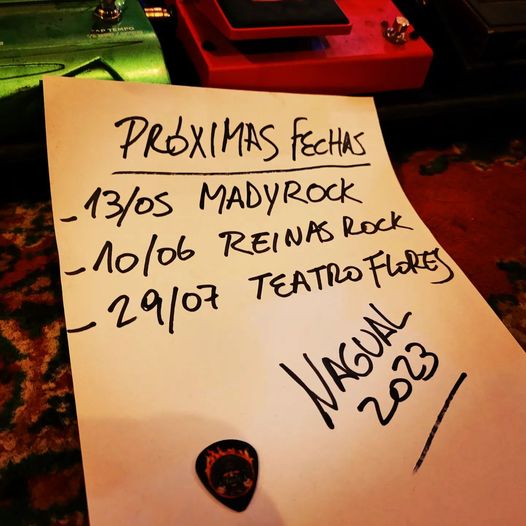 TAP TEMPO
PRÓXIMAS FECHAS
- 13/05 MADYROCK
- 10/06 REINAS ROCK
- 29/07 TEATRO FLORES
NAGUAL
2023